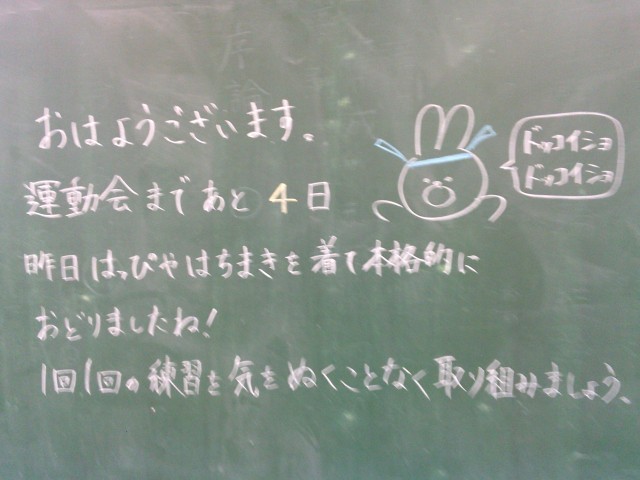 おはようございます。
ドッコイショ
ドッコイショ
運動会まであと4日
昨日はっぴやはちまきを着て本格的に
おどりましたね!
1回1回の練習を気をぬくことなく取り組みましょう。